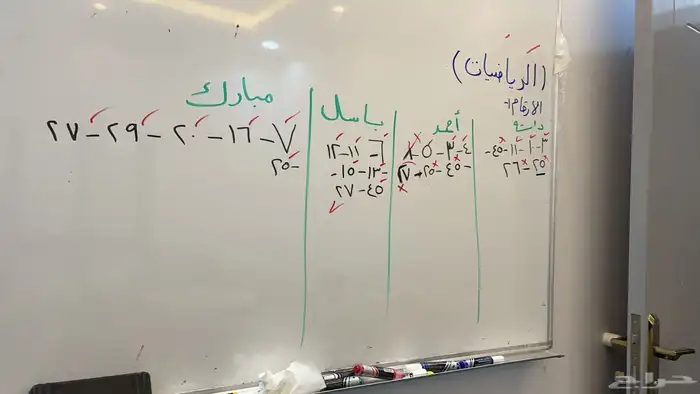 (الرياضيات)
الأرقام:-
دانة
٣-٦-١١-٤٥-
٢٥-٢٦
أحمد
٤-٣-٥-٨
-٤٥-٢٥-٢٧
باسل
٦-١١-١٢
-١٣-١٥-
٤٥-٢٧
مبارك
٧-١٦-٢٠-٢٩-٢٧
-٢٥
حراج